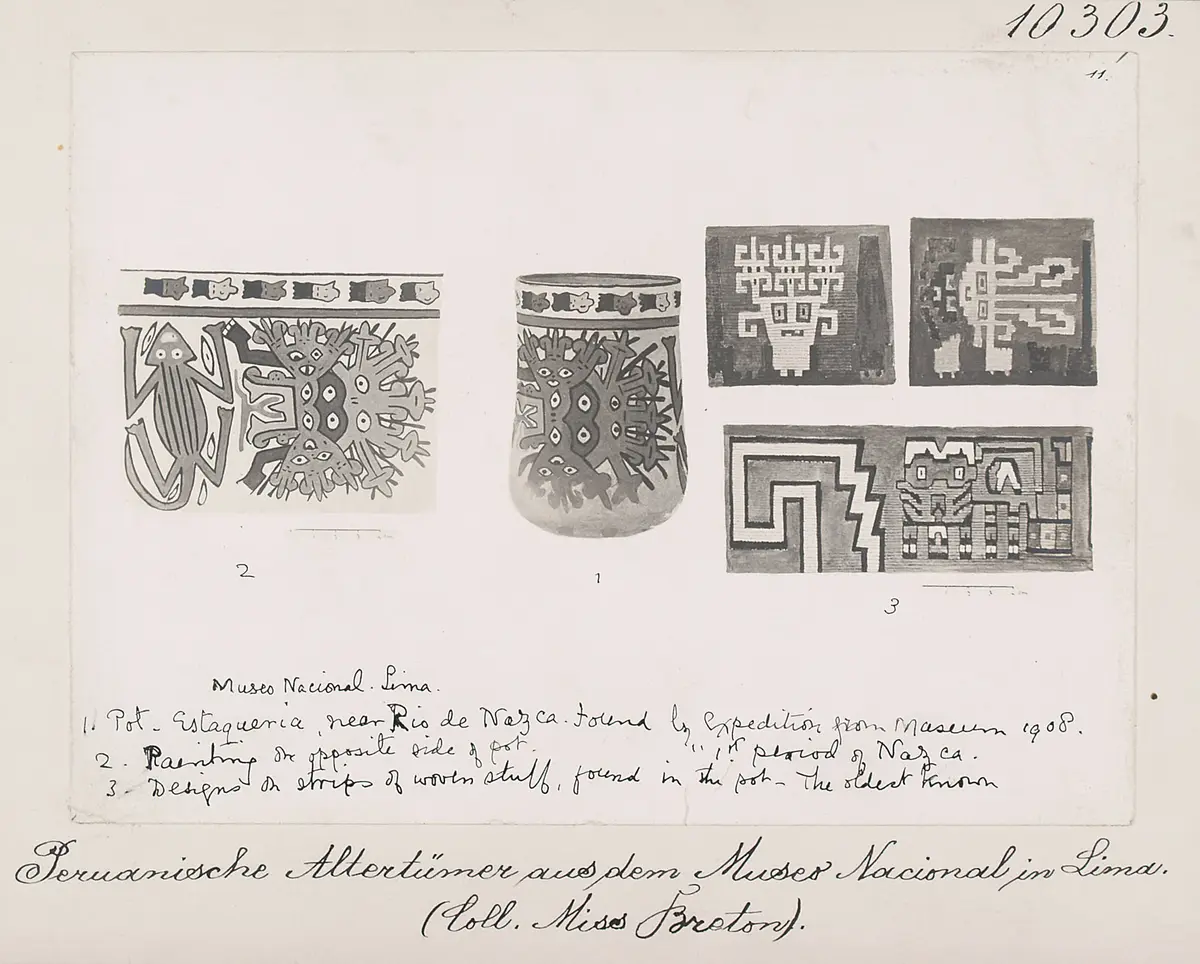 10303.
11.
2
1
3
Museo Nacional. Lima.
1. Pot - Estaqueria, near Rio de Nazca. Found by Expedition from Museum 1908.
2. Painting on opposite side of pot. " 1st period of Nazca.
3 - Designs on strips of woven stuff, found in the pot - The oldest known
Peruanische Altertümer aus dem Museo Nacional in Lima.
(Coll. Miss Breton).